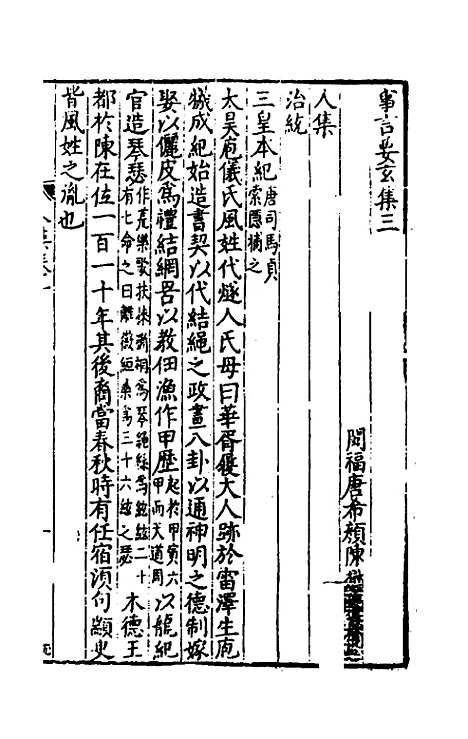 事言要玄集三
閩福唐希顔陳
人集
治統
三皇本紀 唐司馬貞索隱補之
太昊庖儀氏風姓代燧人氏母曰華胥履大人跡於雷澤生庖
犧成紀始造書契以代結繩之政畫八卦以通神明之德制嫁
娶以儷皮爲禮結網罟以教佃漁作甲歷 起於甲寅六甲而天道周 以龍紀
官造琴瑟 二十 有七命之曰離徽 爲三十六絃之瑟 木德王
都於陳在位一百一十年其後裔當春秋時有任宿湏句顓臾
皆風姓之胤也